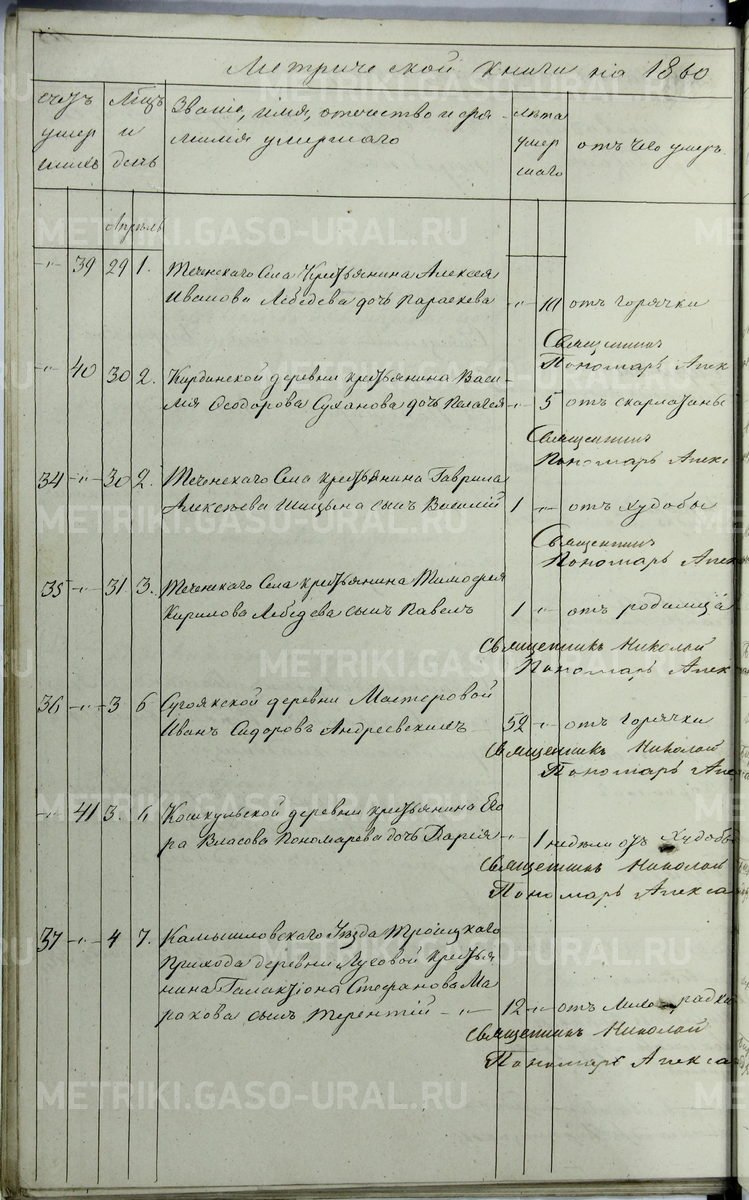 Метрической книги на 1860
счетъ умер шихъ
Мцъ и день
Званіе, имя, отчество и фа-
милія умершаго
лѣта умер шаго
отъ чего умеръ
Апрѣль
-"- 39 29 1. Теченскаго Села Крестьянина Алексея
Иванова Лебедева дочь Параскева -"- отъ горячки
Священникъ
Пономарь Алек
-"- 40 30 2. Кирдинской деревни крестьянина Васи-
лія Ѳеодорова Суханова дочь Пелагея -"- 5 отъ скарлатины
Священникъ
Пономарь Алекс
34 -"- 30 2. Теченскаго Села крестьянина Гаврила
Алексѣева Шицына сынъ Василій 1 -"- отъ худобы
Священникъ
Пономарь Алек
35 -"- 31 3. Теченскаго Села крестьянина Тимофея
Кирилова Лебедева сынъ Павелъ 1 -"- отъ родимца
Священникъ Николай
Пономарь Алек
36 -"- 3 6 Сугоякской деревни Мастеровой
Иванъ Сидоровъ Андреевскихъ 52 -"- отъ Горячки
Священникъ Николай
Пономарь Алек
-"- 41 3. 6 Кошкульской деревни крестьянина Его
ра Власова Пономарева дочь Дарія -"- 1 недели отъ Худобы
Священникъ Николай
Пономарь Алекса
37 -"- 4 7. Камышловскаго Уѣзда Троицкаго
Прихода деревни Лусовой крестья
нина Галактіона Стефанова Ма
рахова сынъ Терентій -"- 12 -"- отъ Лихорадки
Священникъ Николай
Пономарь Алекса
METRIKI.GASO-URAL.RU